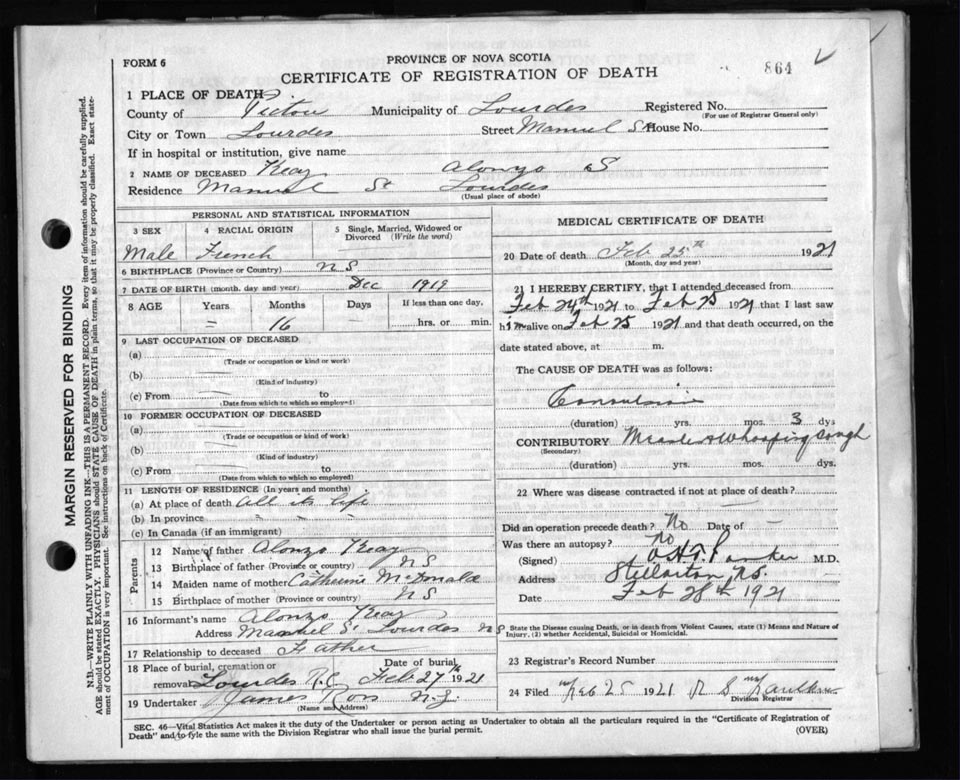 FORM 6
PROVINCE OF NOVA SCOTIA
CERTIFICATE OF REGISTRATION OF DEATH
864
1 PLACE OF DEATH
County of Pictou Municipality of Lourdes Registered No.
(For use of Registrar General only)
City or Town Lourdes Street Manuel St House No.
If in hospital or institution, give name
2 NAME OF DECEASED Keay Alonzo S
Residence Manuel St Lourdes
(Usual place of abode)
PERSONAL AND STATISTICAL INFORMATION
3 SEX 4 RACIAL ORIGIN 5 Single, Married, Widowed or Divorced (Write the word)
Male French
6 BIRTHPLACE (Province or Country) N S
7 DATE OF BIRTH (month, day and year) Dec 1919
8 AGE Years Months Days If less than one day,
= 16 hrs. or min.
9 LAST OCCUPATION OF DECEASED
(a)
(Trade or occupation or kind or work)
(b)
(Kind of industry)
(c) From to
(Date from which to which so employed)
10 FORMER OCCUPATION OF DECEASED
(a)
(Trade or occupation or kind of work)
(b)
(Kind of industry)
(c) From to
(Date from which to which so employed)
11 LENGTH OF RESIDENCE (In years and months)
(a) At place of death All its life
(b) In province " " "
(c) In Canada (if an immigrant)
Parents
12 Name of father Alonzo Keay
13 Birthplace of father (Province or Country) N S
14 Maiden name of mother Catherine McDonald
15 Birthplace of mother (Province or country) N S
16 Informant's name Alonzo Keay
Address Manuel St Lourdes N S
17 Relationship to deceased Father
18 Place of burial, cremation or removal Lourdes R.C. Date of burial Feb 27th 1921
19 Undertaker James Ross N.G.
(Name and Address)
MEDICAL CERTIFICATE OF DEATH
20 Date of death Feb 25th 1921
(Month, day and year)
21 I HEREBY CERTIFY, that I attended deceased from
Feb 24th 1921 to Feb 25 1921 that I last saw
him alive on Feb 25 1921 and that death occurred, on the
date stated above, at m.
The CAUSE OF DEATH was as follows:
Convulsions
(duration) yrs. mos. 3 dys
CONTRIBUTORY Measles & Whooping Cough
(Secondary)
(duration) yrs. mos. dys.
22 Where was disease contracted if not at place of death?
Did an operation precede death? No Date of –
Was there an autopsy? No
(Signed) M.D.
Address Stellarton N.S.
Date Feb 28th 1921
State the Disease causing Death, or in death from Violent Causes, state (1) Means and Nature of Injury, (2) whether Accidental, Suicidal or Homicidal.
23 Registrar's Record Number
24 Filed Feb 25 1921
Division Registrar
SEC. 46—Vital Statistics Act makes it the duty of the Undertaker or person acting as Undertaker to obtain all the particulars required in the "Certificate of Registration of
Death" and to fyle the same with the Division Registrar who shall issue the burial permit.
(OVER)
MARGIN RESERVED FOR BINDING
N.B.—WRITE PLAINLY WITH UNFADING INK—THIS IS A PERMANENT RECORD. Every item of information should be carefully supplied.
AGE should be stated EXACTLY. PHYSICIANS should STATE CAUSE OF DEATH in plain terms, so that it may be properly classified. Exact state-
ment of OCCUPATION is very important. See instructions on back of Certificate.